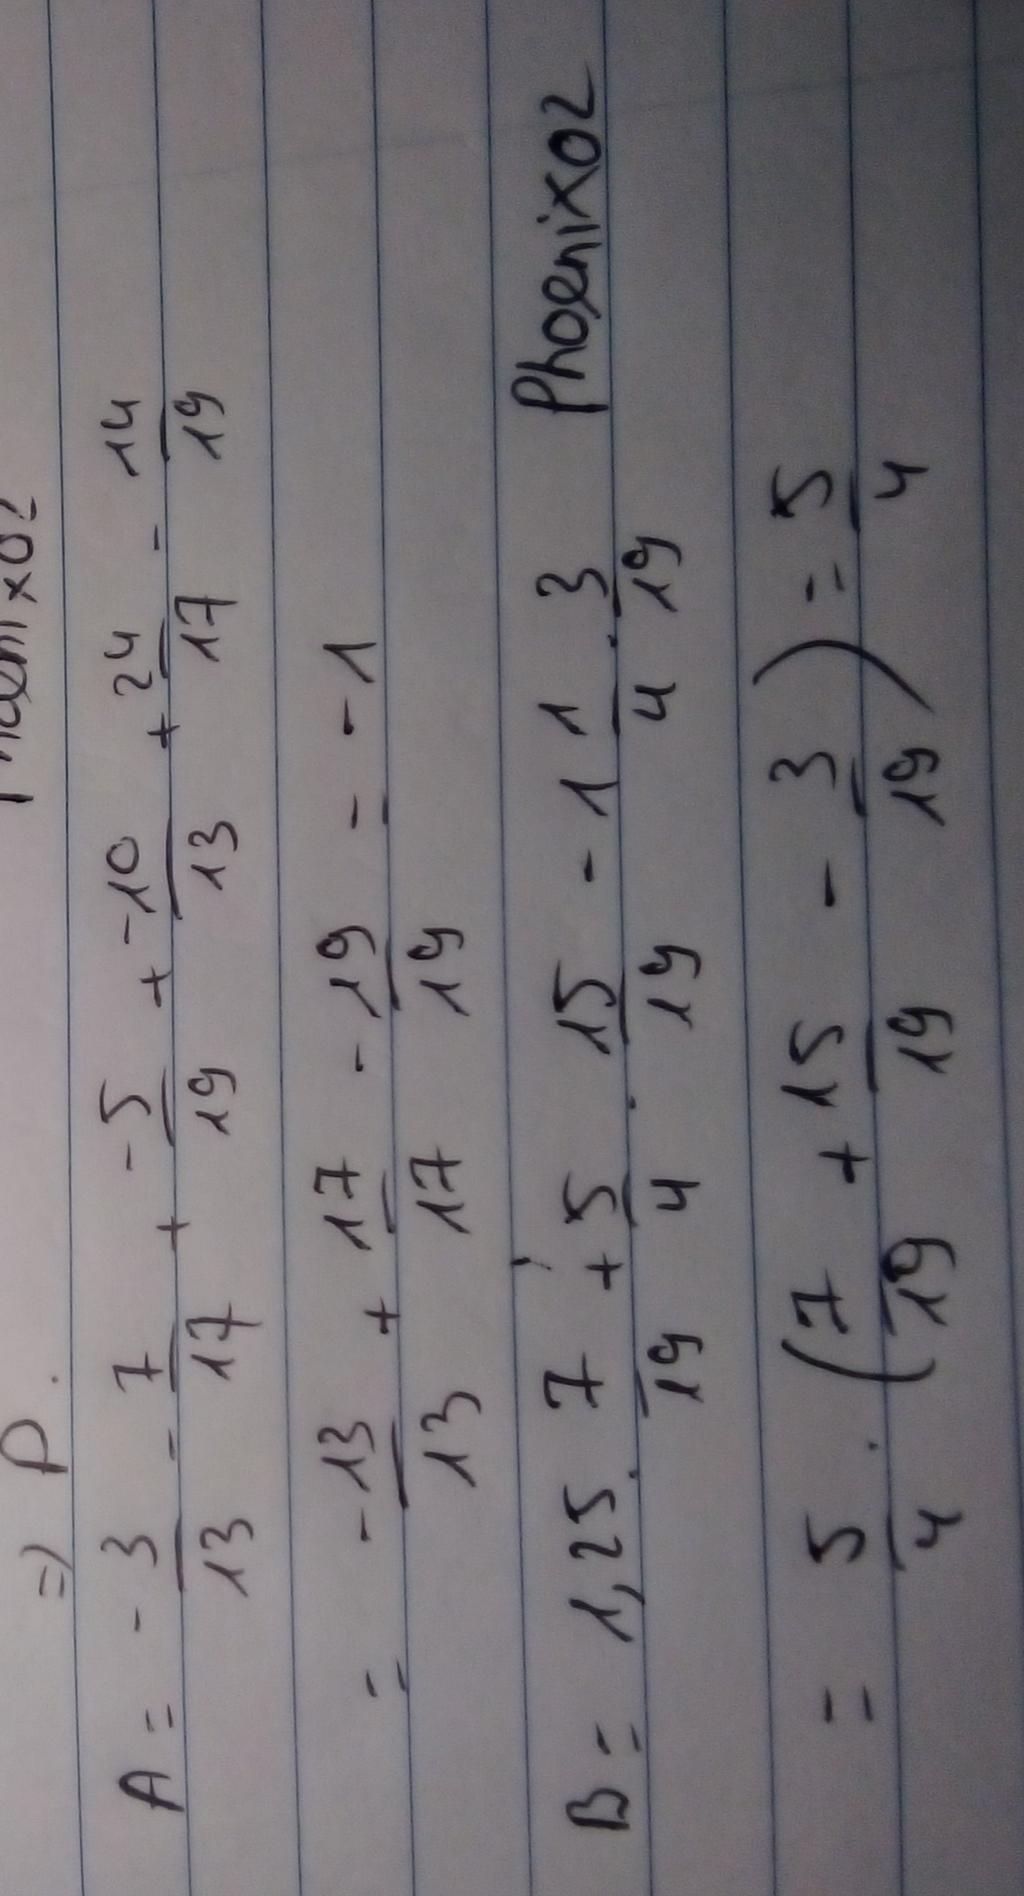 =) P.
A = - 3/13 - 7/17 + -5/19 + -10/13 + 24/17 - 14/19
= -13/13 + 17/17 - 19/19 = -1
B = 1,25. 7/19 + 5/4 . 15/19 - 1 1/4 . 3/19 Phoenix02
= 5/4 . (7/19 + 15/19 - 3/19) = 5/4